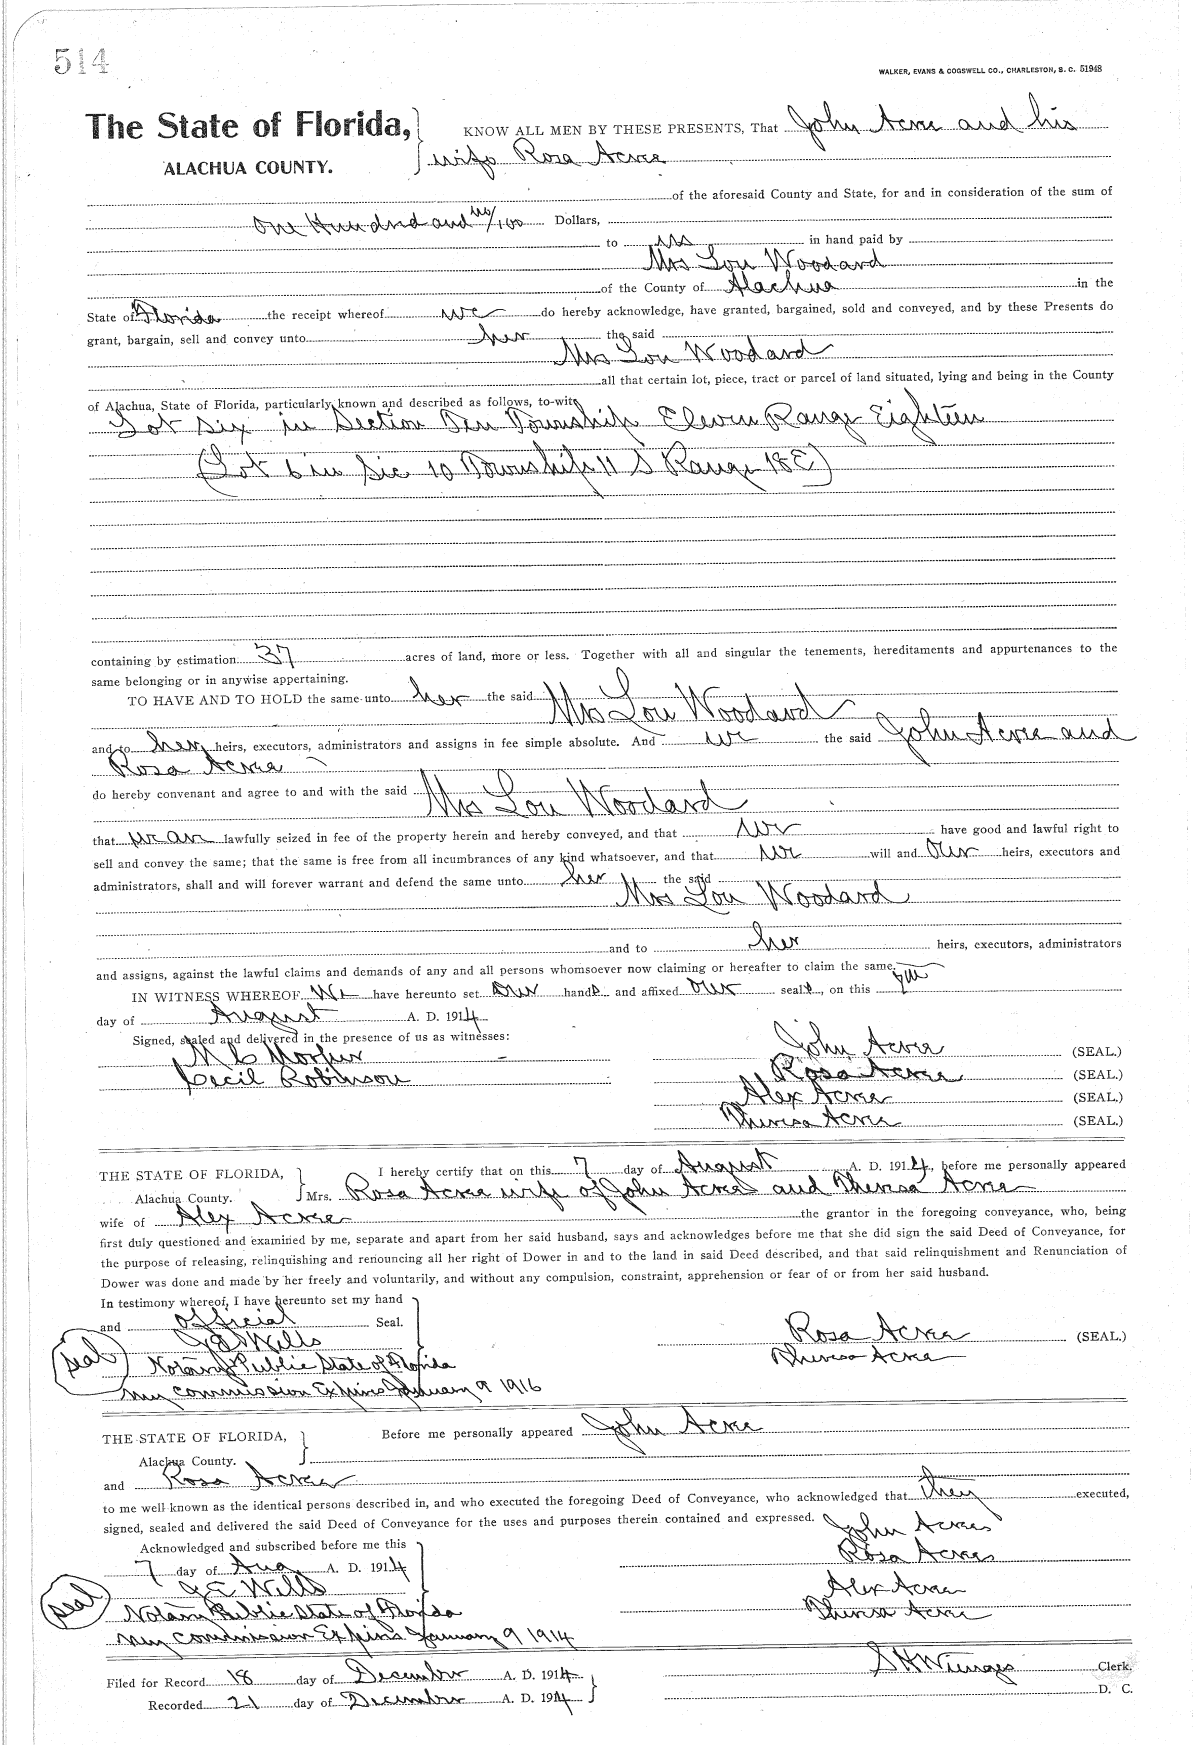 514
WALKER, EVANS & COGSWELL CO., CHARLESTON, S. C. 51948
The State of Florida,
ALACHUA COUNTY.
KNOW ALL MEN BY THESE PRESENTS, That John Acree and his
wife Rosa Acree
of the aforesaid County and State, for and in consideration of the sum of
One Hundred and no/100 Dollars,
to us in hand paid by
Mrs Lou Woodard
of the County of Alachua in the
State of Florida the receipt whereof we do hereby acknowledge, have granted, bargained, sold and conveyed, and by these Presents do
grant, bargain, sell and convey unto her the said
Mrs Lou Woodard
all that certain lot, piece, tract or parcel of land situated, lying and being in the County
of Alachua, State of Florida, particularly known and described as follows, to-wit
Lot Six in Section Ten Township Eleven Range Eighteen
(Lot 6 in Sec 10 Township 11 S Range 18E)
containing by estimation 37 acres of land, more or less. Together with all and singular the tenements, hereditaments and appurtenances to the
same belonging or in anywise appertaining.
TO HAVE AND TO HOLD the same unto her the said Mrs Lou Woodard
and to her heirs, executors, administrators and assigns in fee simple absolute. And we the said John Acree and
Rosa Acree
do hereby convenant and agree to and with the said Mrs Lou Woodard
that we are lawfully seized in fee of the property herein and hereby conveyed, and that we have good and lawful right to
sell and convey the same; that the same is free from all incumbrances of any kind whatsoever, and that we will and our heirs, executors and
administrators, shall and will forever warrant and defend the same unto her the said
Mrs Lou Woodard
and to her heirs, executors, administrators
and assigns, against the lawful claims and demands of any and all persons whomsoever now claiming or hereafter to claim the same.
IN WITNESS WHEREOF We have hereunto set our hands and affixed our seals, on this 7th
day of August A. D. 1914
Signed, sealed and delivered in the presence of us as witnesses:
M C
Cecil Robinson
John Acree (SEAL.)
Rosa Acree (SEAL.)
Alex Acree (SEAL.)
Theresa Acree (SEAL.)
THE STATE OF FLORIDA,
Alachua County.
I hereby certify that on this 7 day of August A. D. 1914, before me personally appeared
Mrs. Rosa Acree wife of John Acree and Theresa Acree
wife of Alex Acree the grantor in the foregoing conveyance, who, being
first duly questioned and examined by me, separate and apart from her said husband, says and acknowledges before me that she did sign the said Deed of Conveyance, for
the purpose of releasing, relinquishing and renouncing all her right of Dower in and to the land in said Deed described, and that said relinquishment and Renunciation of
Dower was done and made by her freely and voluntarily, and without any compulsion, constraint, apprehension or fear of or from her said husband.
In testimony whereof, I have hereunto set my hand
and official Seal.
J E Wells
seal
Notary Public State of Florida
My commission Expires January 9 1916
Rosa Acree (SEAL.)
Theresa Acree
THE STATE OF FLORIDA,
Alachua County.
Before me personally appeared John Acree
and Rosa Acree
to me well known as the identical persons described in, and who executed the foregoing Deed of Conveyance, who acknowledged that they executed,
signed, sealed and delivered the said Deed of Conveyance for the uses and purposes therein contained and expressed.
Acknowledged and subscribed before me this
7 day of Aug A. D. 1914
J E Wells
seal
Notary Public State of Florida
My Commission Expires January 9 1914
John Acree
Rosa Acree
Alex Acree
Theresa Acree
Filed for Record 18 day of December A. D. 1914
Recorded 21 day of December A. D. 1914
S H Wienges Clerk.
D. C.